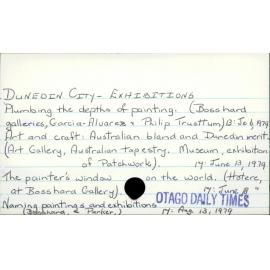 DUNEDIN CITY - EXHIBITIONS
Plumbing the depths of painting. (Bosshard
galleries, Garcia-Alvarez & Philip Trusttum) 13: Jo 6, 1979
Art and craft: Australian bland and Dunedin merit.
(Art Gallery, Australian tapestry. Museum, exhibition
of Patchwork). 17: June 13, 1979
The painter's window on the world. (Hotere,
at Bosshard Gallery). 17: June 8 "
OTAGO DAILY TIMES
Naming paintings and exhibitions
(Bosshard, & Parker,) 17: Aug 13, 1979